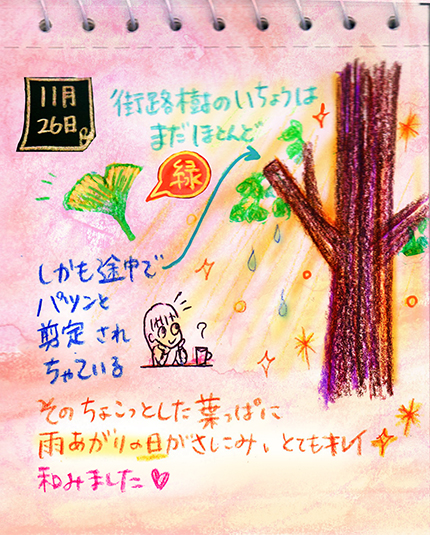 11月
26日
街路樹のいちょうは
まだほとんど
緑
しかも途中で
パツンと
剪定され
ちゃている
?
そのちょこっとした葉っぱに
雨あがりの日がさしこみ、とてもキレイ
和みました♡